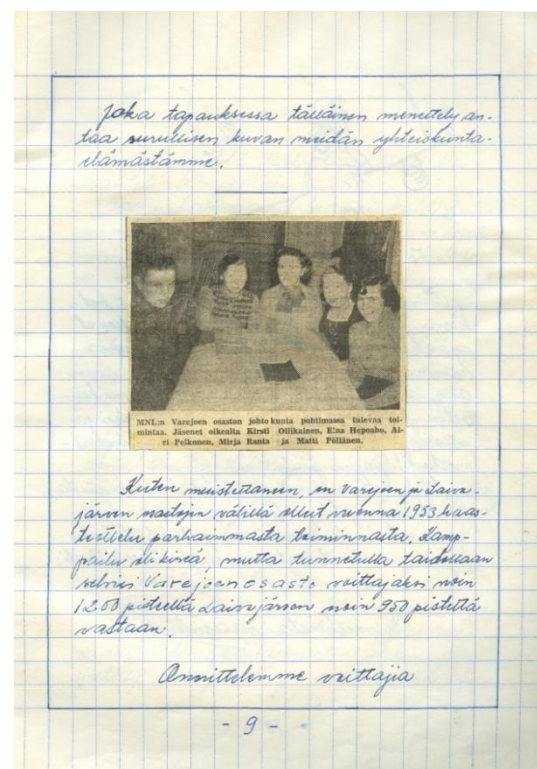 Joka tapauksessa tälläinen menettely an-
taa surullisen kuvan meidän yhteiskunta-
elämästämme.
MNL:n Varejoen osaston johtokunta pohtimassa tulevaa toi-
mintaa. Jäsenet oikealta Kirsti Ollikainen, Elna Hepoaho, Ai-
ri Pelkonen, Mirja Ranta ja Matti Pöllänen.
Kuten muistettaneen, on Varejoen ja Laiva-
järven osastojen välillä ollut vuonna 1953 haas-
tottelu parhaimmasta toiminnasta. Kamp-
pailu oli kireä, mutta tunnetulla taidollaan
selvisi Varejoen osasto voittajaksi noin
1200 pisteellä Laivajärven noin 950 pistettä
vastaan.
Onnittelemme voittajia
- 9 -